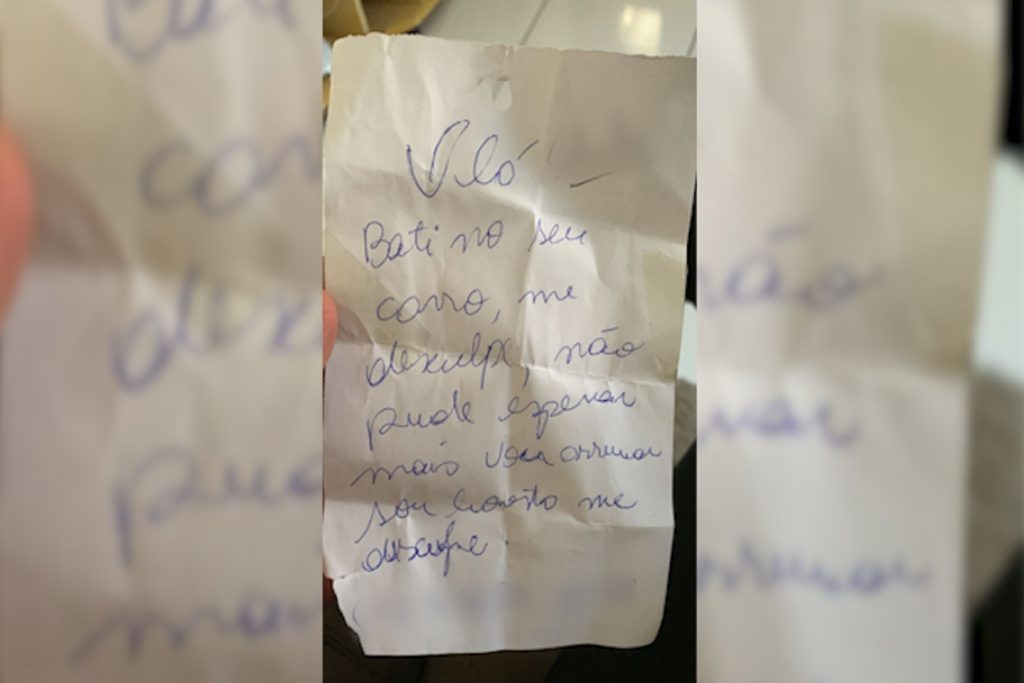 Vló
Bati no seu
carro, me
desculpe, não
pude esperar
mais vou arrumar
sou honesto me
desculpe.